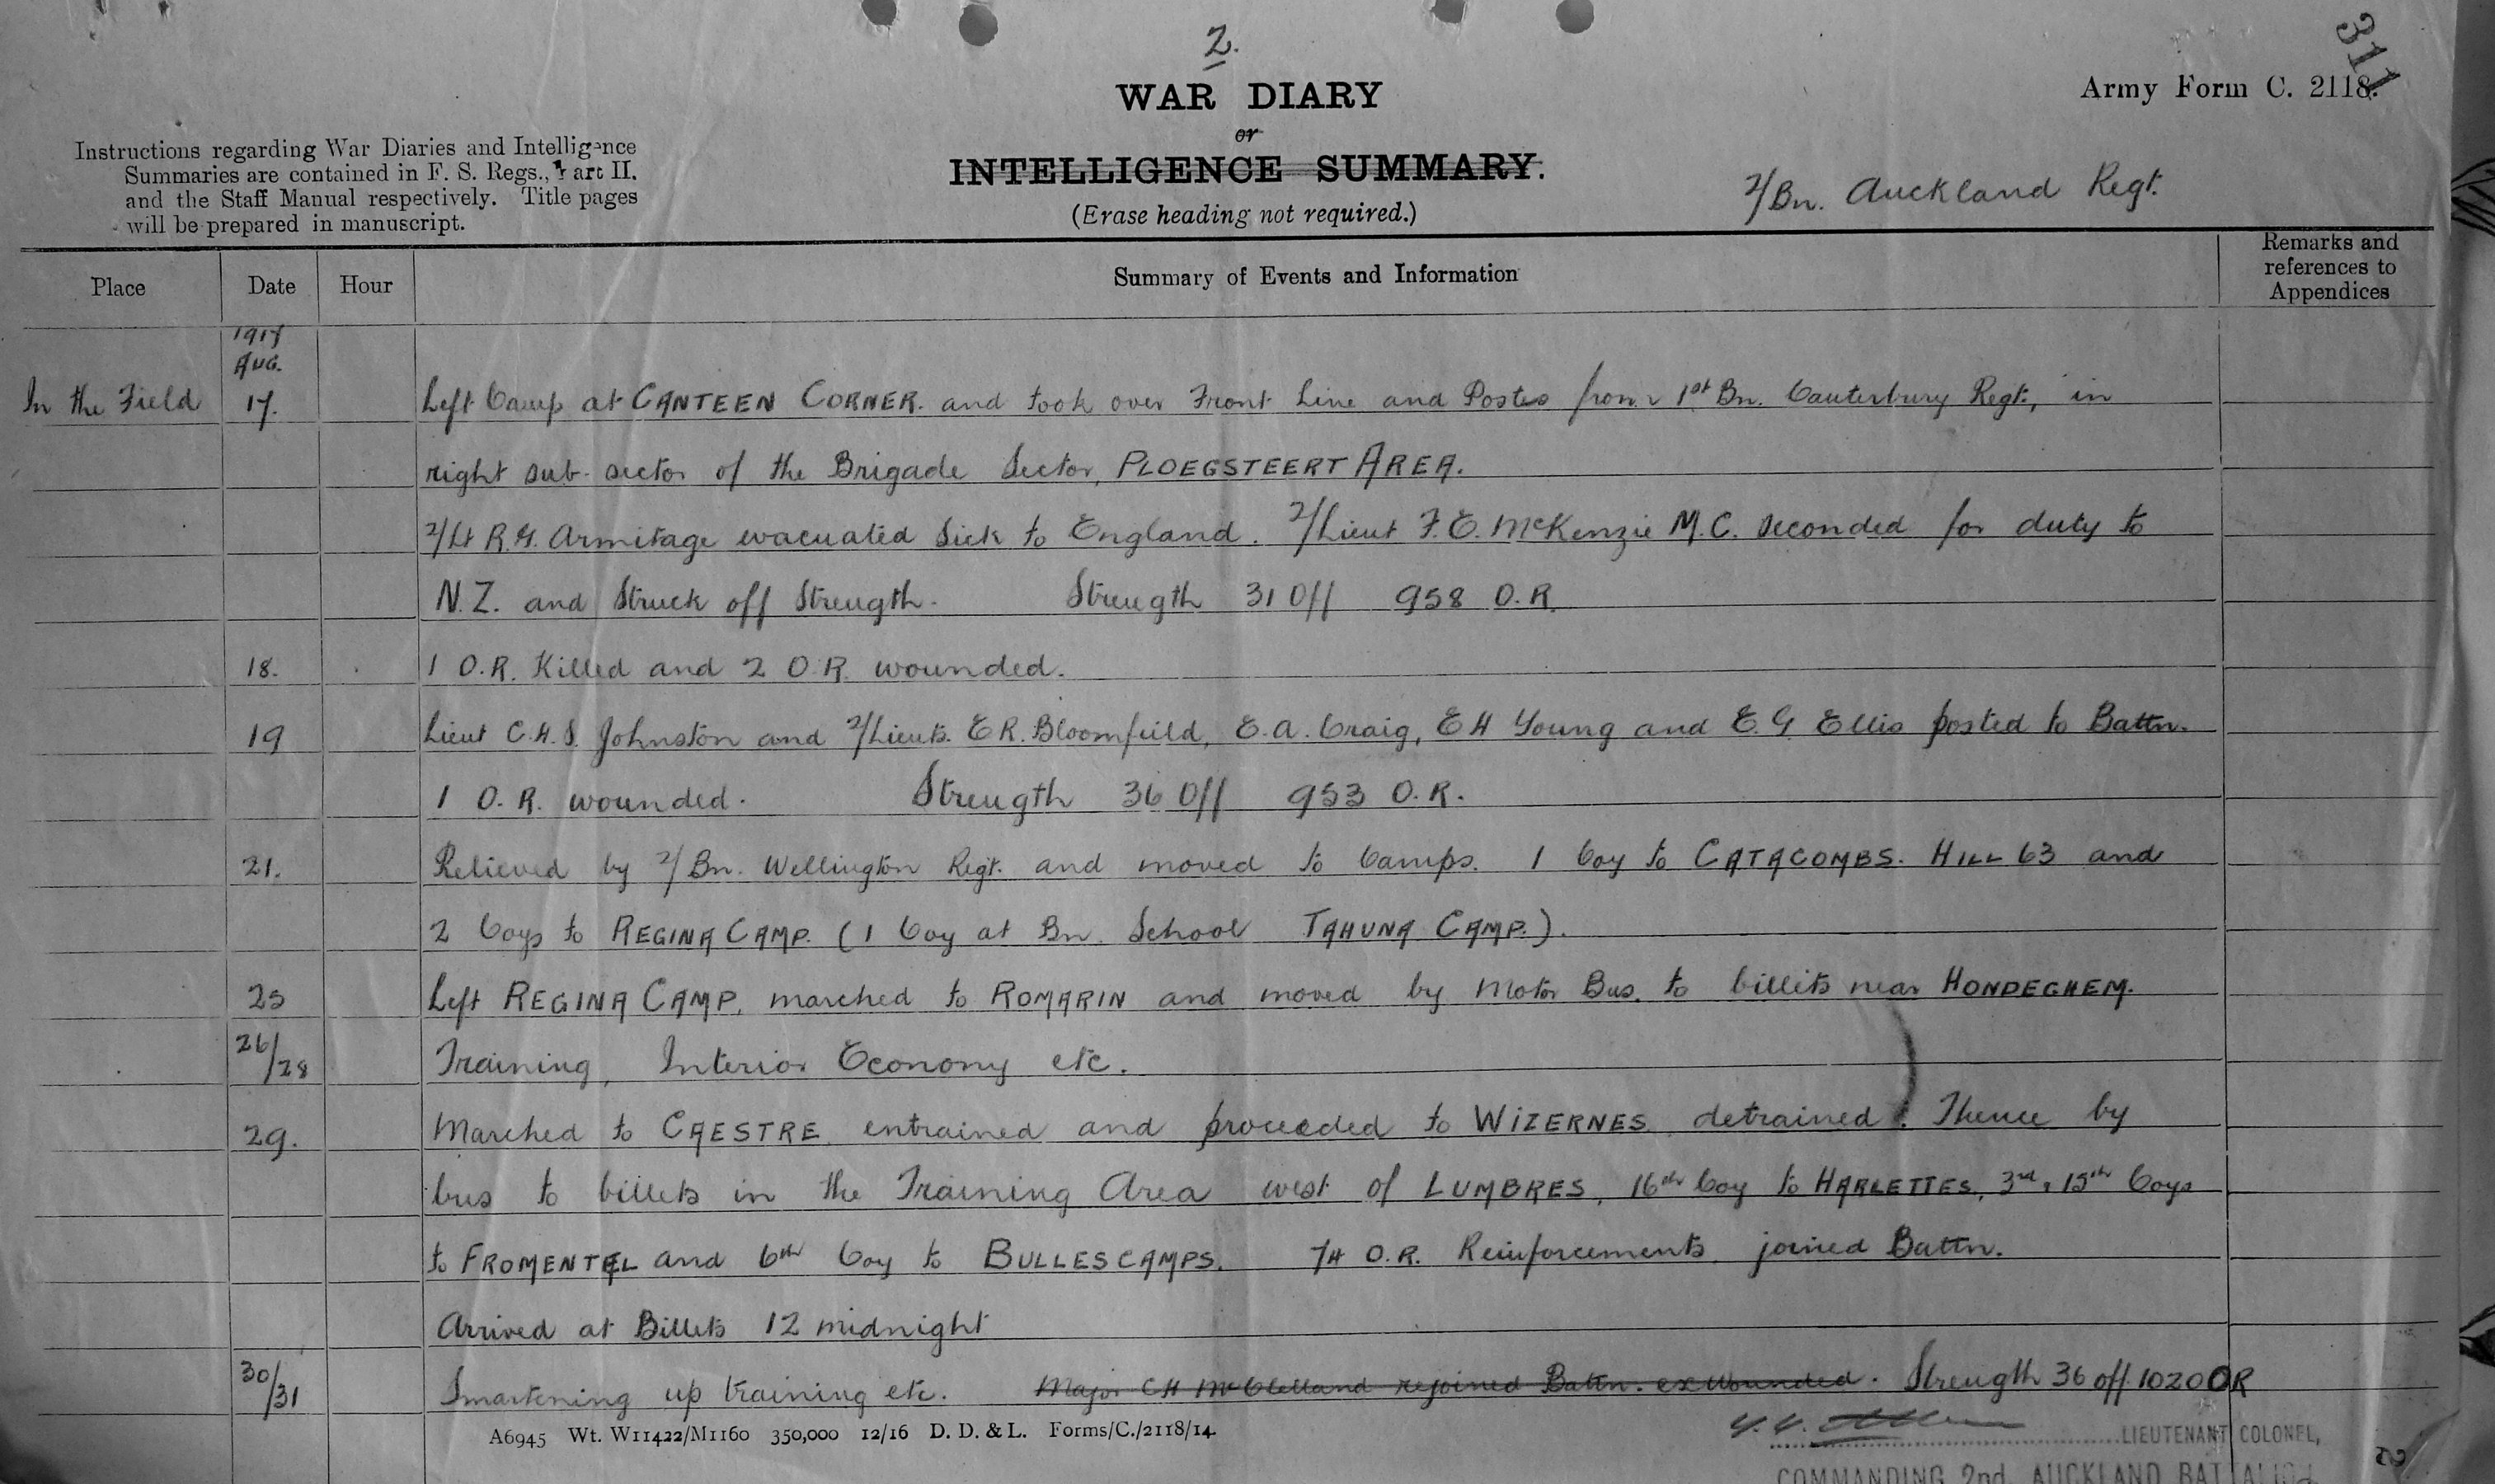 2.
311
WAR DIARY
Army Form C. 2118.
or
INTELLIGENCE SUMMARY.
(Erase heading not required.)
Instructions regarding War Diaries and Intelligence
Summaries are contained in F. S. Regs., Part II.
and the Staff Manual respectively. Title pages
will be prepared in manuscript.
2/Bn. Auckland Regt.
Place Date Hour Summary of Events and Information Remarks and references to Appendices
1917
AUG.
In the Field 17. Left Camp at CANTEEN CORNER. and took over Front Line and Postes from 1st Bn. Canterbury Regt., in
right sub-sector of the Brigade Sector, PLOEGSTEERT AREA.
2/Lt R.G. Armitage evacuated Sick to England. 2/Lieut F.E. McKenzie M.C. seconded for duty to
N.Z. and Struck off Strength. Strength 31 Off 958 O.R.
18. 1 O.R. Killed and 2 O.R. wounded.
19 Lieut C.H.S. Johnston and 2/Lieuts. E R. Bloomfield, E.A. Craig, E H Young and E. G Ellis posted to Battn.
1 O.R. wounded. Strength 36 Off 953 O.R.
21. Relieved by 2/Bn. Wellington Regt. and moved to Camps. 1 Coy to CATACOMBS. HILL 63 and
2 Coys to REGINA CAMP. (1 Coy at Bn. School TAHUNA CAMP.).
25 Left REGINA CAMP, marched to ROMARIN and moved by Motor Bus. to billets near HONDEGHEM.
26/28 Training, Interior Economy etc.
29. Marched to CAESTRE entrained and proceeded to WIZERNES detrained. Thence by
bus to billets in the Training Area west of LUMBRES, 16th Coy to HARLETTES, 3rd & 15th Coys
to FROMENTEL and 6th Coy to BULLESCAMPS. 74 O.R. Reinforcements joined Battn.
Arrived at Billets 12 midnight
30/31 Smartening up training etc. Major C H McClelland rejoined Battn. ex Wounded. Strength 36 off 1020 OR
A6945 Wt. W11422/M1160 350,000 12/16 D. D. & L. Forms/C./2118/14
LIEUTENANT COLONEL,
COMMANDING 2nd. AUCKLAND BATTALION